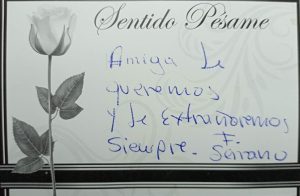 Sentido Pésame
Amiga le
queremos
y le extrañaremos
siempre. F.
Serrano